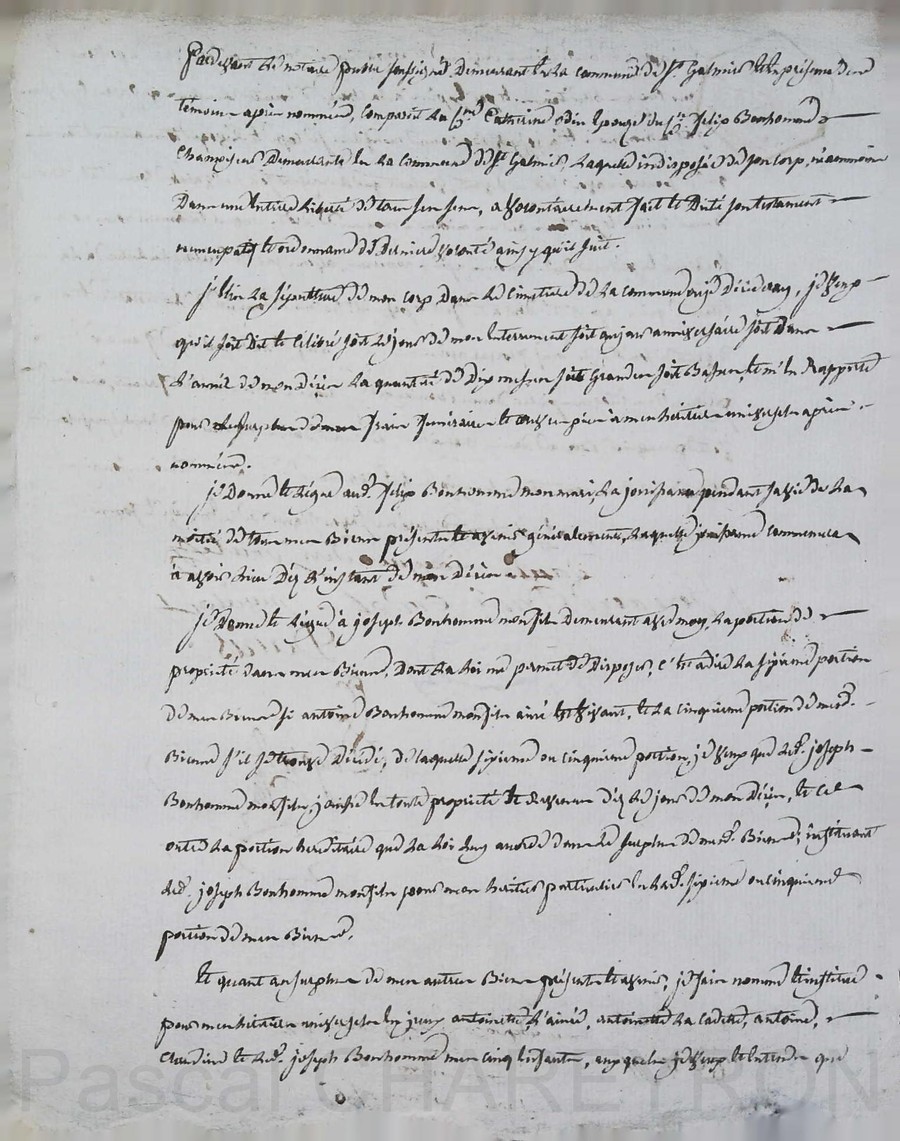 Pardevant le notaire public soussigné, Demeurant en la commune de St Galmier et en présence des
témoins après nommés, comparut la Cne Catherine odin Epouze du Cn Felix Bonhomme
Demeurante en la commune de St Galmier, laquelle indisposée de son corp, néanmoins
Dans une entiere liberté de tous ses sens, a volontairement fait et Dicté son testament
nuncupatif et ordonnance de Derniere volonté ainsy qu'il suit.
j'Elis la sépulture de mon corp Dans le cimetiere de la commune ou je Décéderay, je veux
qu'il soit Dit et célébré soit le jour de mon Enterrement soit au jour anniversaire soit Dans
l'année de mon Décès la quantité de Dix messes soit Grandes soit Basses, et m'En Rapporte
pour le surplus de mes frais funéraires et œuvres pies à mes héritiers universels après
nommés.
je Donne et légue aud. Felix Bonhomme mon mari, la jouissance pendant sa vie de la
moitié de tous mes Biens présents et avenir généralement, laquelle jouissance commencera
à avoir lieu Déz l'instant de mon Décès.
je Donne et légue à joseph Bonhomme mon fils Demeurant avec moy, la portion de
propriété dans mes Biens, Dont la loi me permet de Disposer, c'est adire la sixieme portion
de mes Biens si antoine Bonhomme mon fils ainé Est Vivant, et la cinquieme portion de mesd.
Biens s'il se trouve Décédé, de laquelle sixieme ou cinquieme portion, je veux que led. joseph
Bonhomme mon fils, jouisse En toute propriété et Revenus déz le jour de mon Décès, et ce
outre la portion héréditaire que la loi luy accorde dans le surplus de mesd. Biens, instituant
led. joseph Bonhomme mon fils pour mon héritier particulier En lad. sixieme ou cinquieme
portion de mes Biens.
Et quant au surplus de mes autres Biens présents et avenir, je fais nomme et institue
pour mes héritiers universels En jceux antoinette l'ainée, antoinette la cadette, antoine,
Claudine et led. joseph Bonhomme mes cinq Enfants, auxquels je veux et Entends que
Pascal CHAREYRON